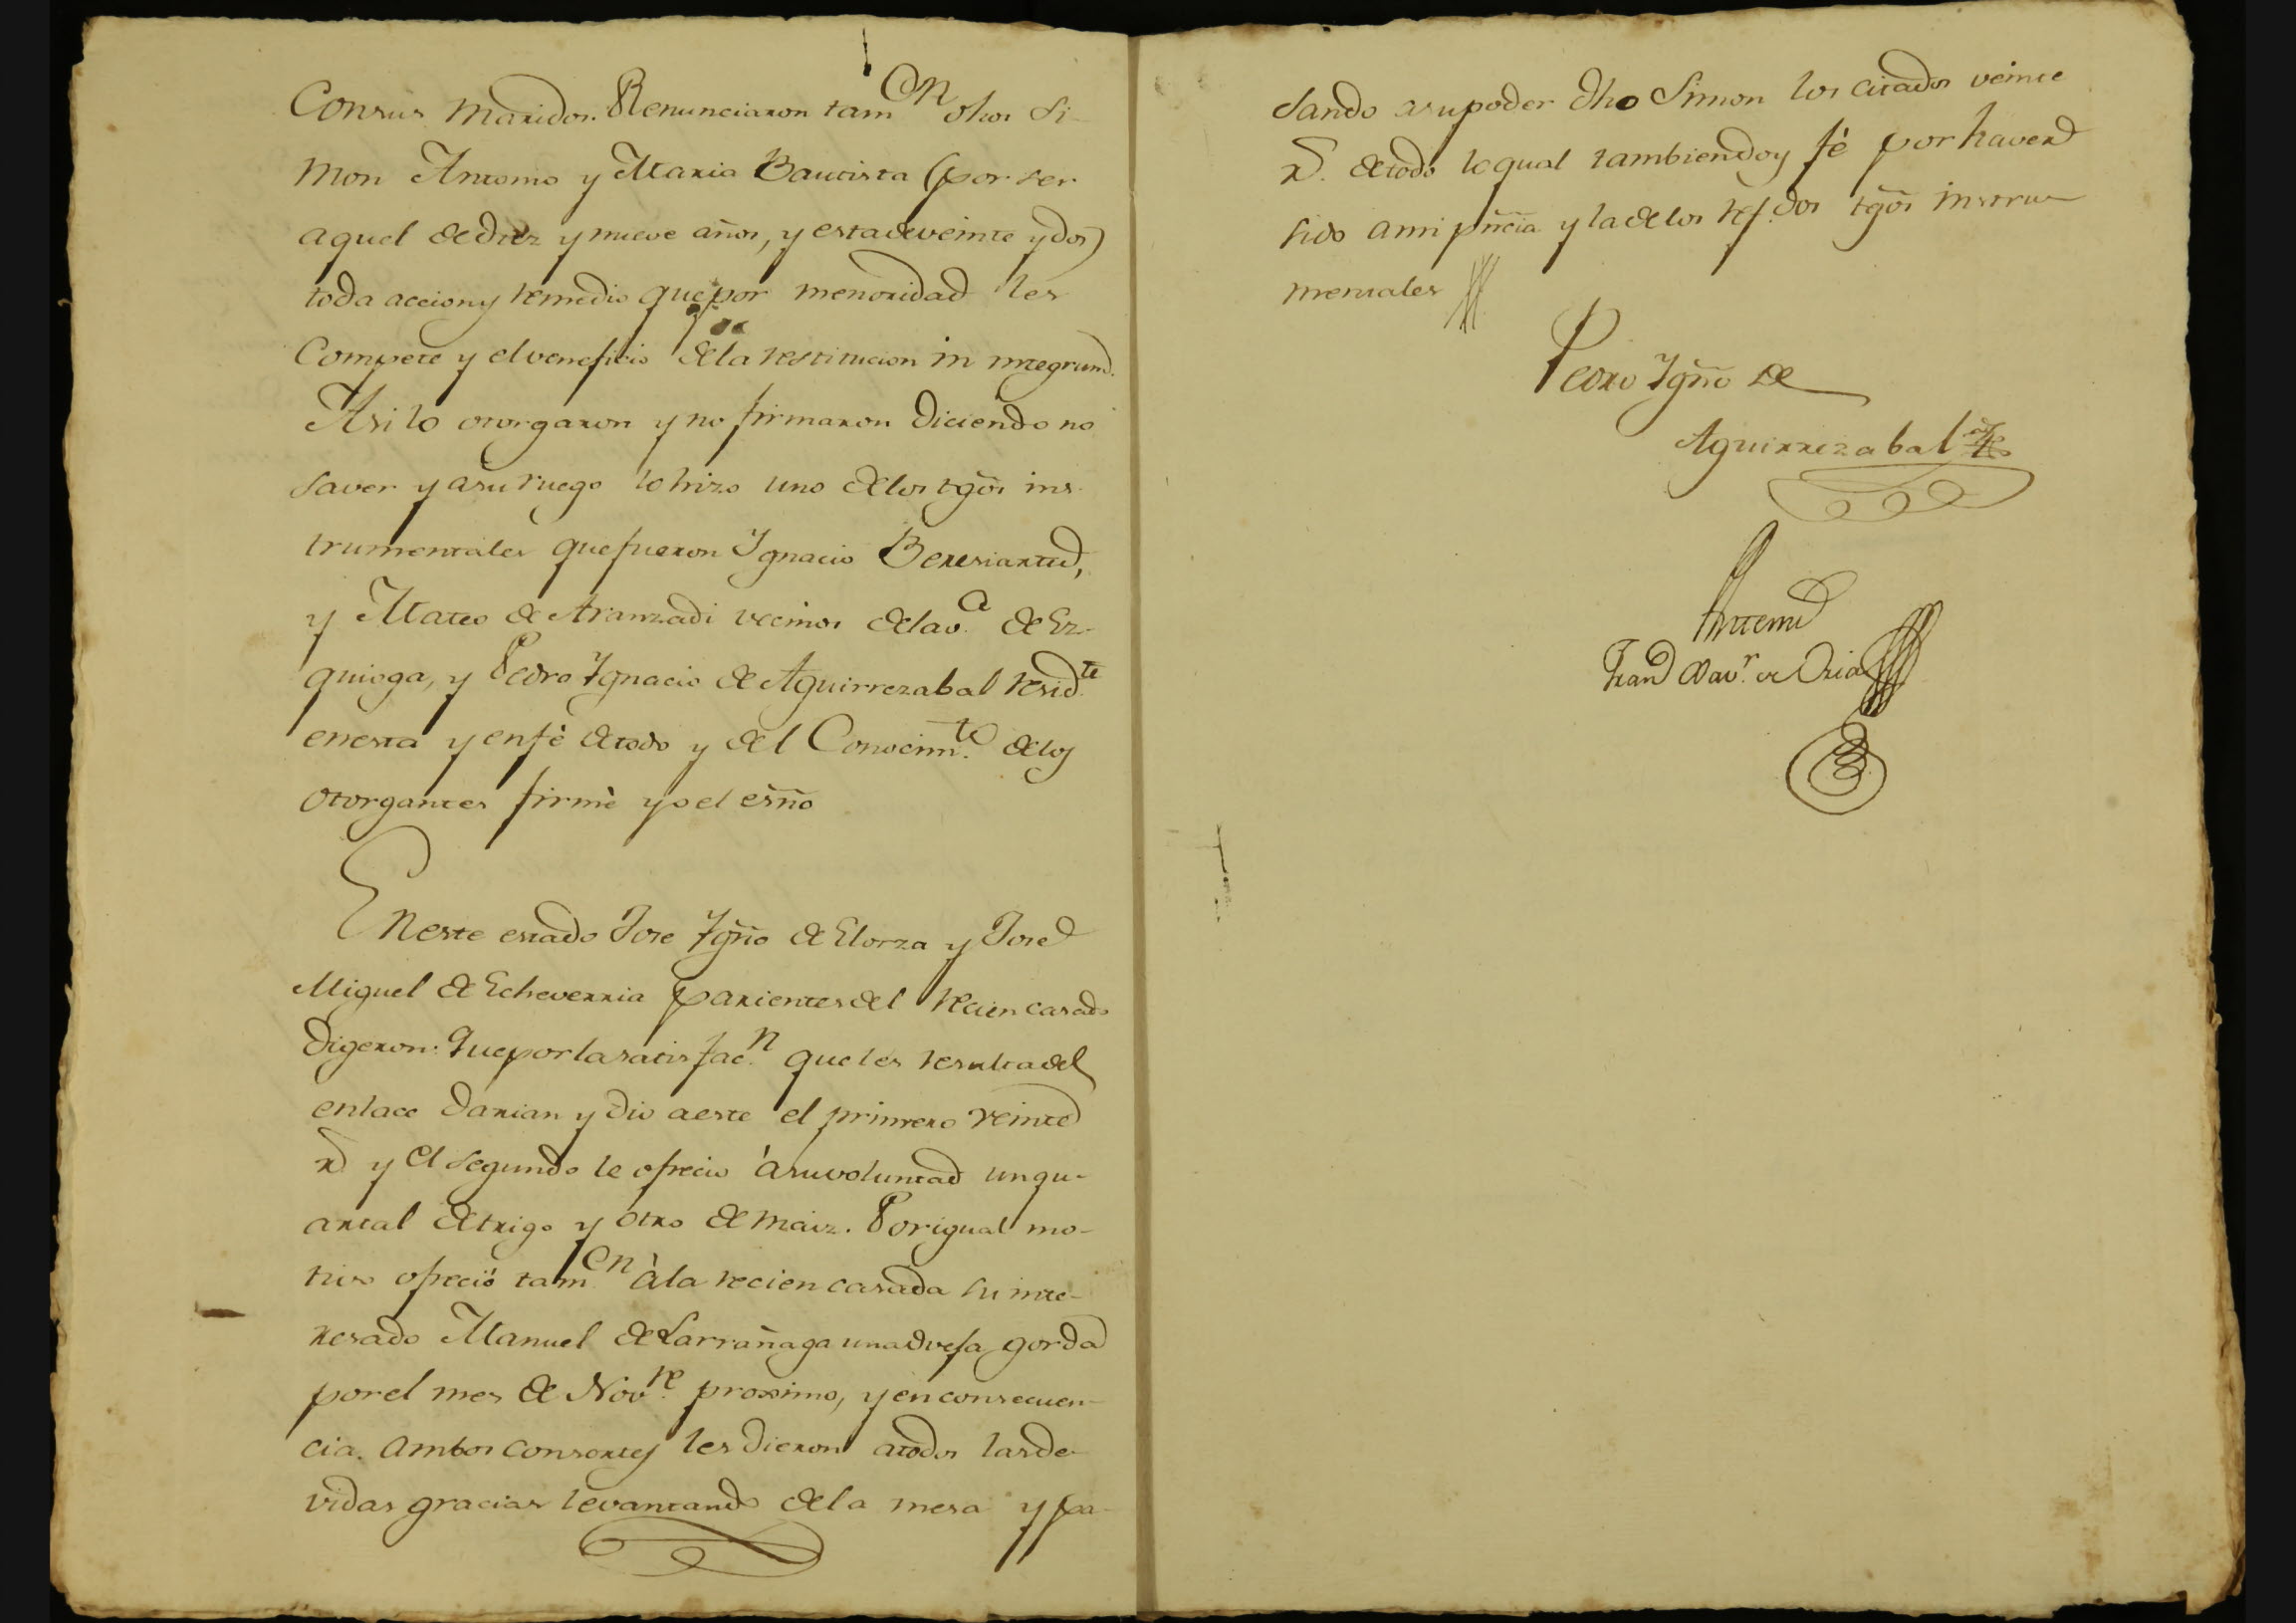 Consus Maridos. Renunciaron tam.en dhos Si-
mon Antonio y Maria Bautista (por ser
aquel de diez y nueve años, y esta de veinte y dos)
toda accion y remedio que por menoridad les
Compete y el veneficio de la restitucion in integrum.
Asi lo otorgaron y no firmaron diciendo no
saver y asu ruego lo hizo uno delos tgõs ins-
trumentales que fueron Ygnacio Beresiartu,
y Mateo de Aranzadi vecinos dela v.a de Ez-
quioga, y Pedro Ygnacio de Aguirrezabal resid.te
enesta y enfè de todo y del Conocim.to delos
otorgantes firmè yo el esñõ
Eneste estado Jose Ygñõ de Elorza y Jose
Miguel de Echeverria parientes del recien casado
digeron: Que por la satisfac.n que les resulta del
enlace darian y dio a este el primero veinte
r.s y el segundo le ofrecio à su voluntad un qu-
artal de trigo y otro de maiz. Por igual mo-
tivo ofreciò tam.en à la recien casada su inte-
resado Manuel de Larrañaga una oveja gorda
por el mes de Nov.re proximo, y en consecuen-
cia. ambos consortes les dieron atodos las de-
vidas gracias levantando dela mesa y pa-
sando a su poder dho Simon los citados veinte
r.s de todo lo qual tambien doy fè por haver
sido ami pñcia y la delos ref.dos tgõs instru-
mentales
Pedro Ygñõ de
Aguirrezabal
Antemi
Fran.co Xav.r de Oria